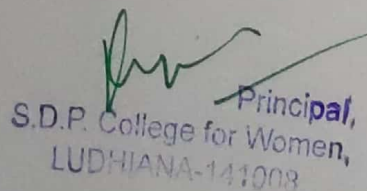 Principal,
S.D.P. College for Women,
LUDHIANA-141008